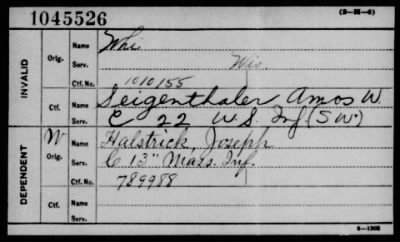 1045526
(3-M-6)
INVALID
Orig.
Name Whi
Serv. Wis.
Ctf. No. 1010155
Ctf.
Name Seigenthaler Amos W.
Serv. E 22 U.S. Inf (S.W.)
DEPENDENT
W
Orig.
Name Halstrick, Joseph
Serv. C 13" Mass. Inf.
Ctf. No. 789988
Ctf.
Name
Serv.
6-1909